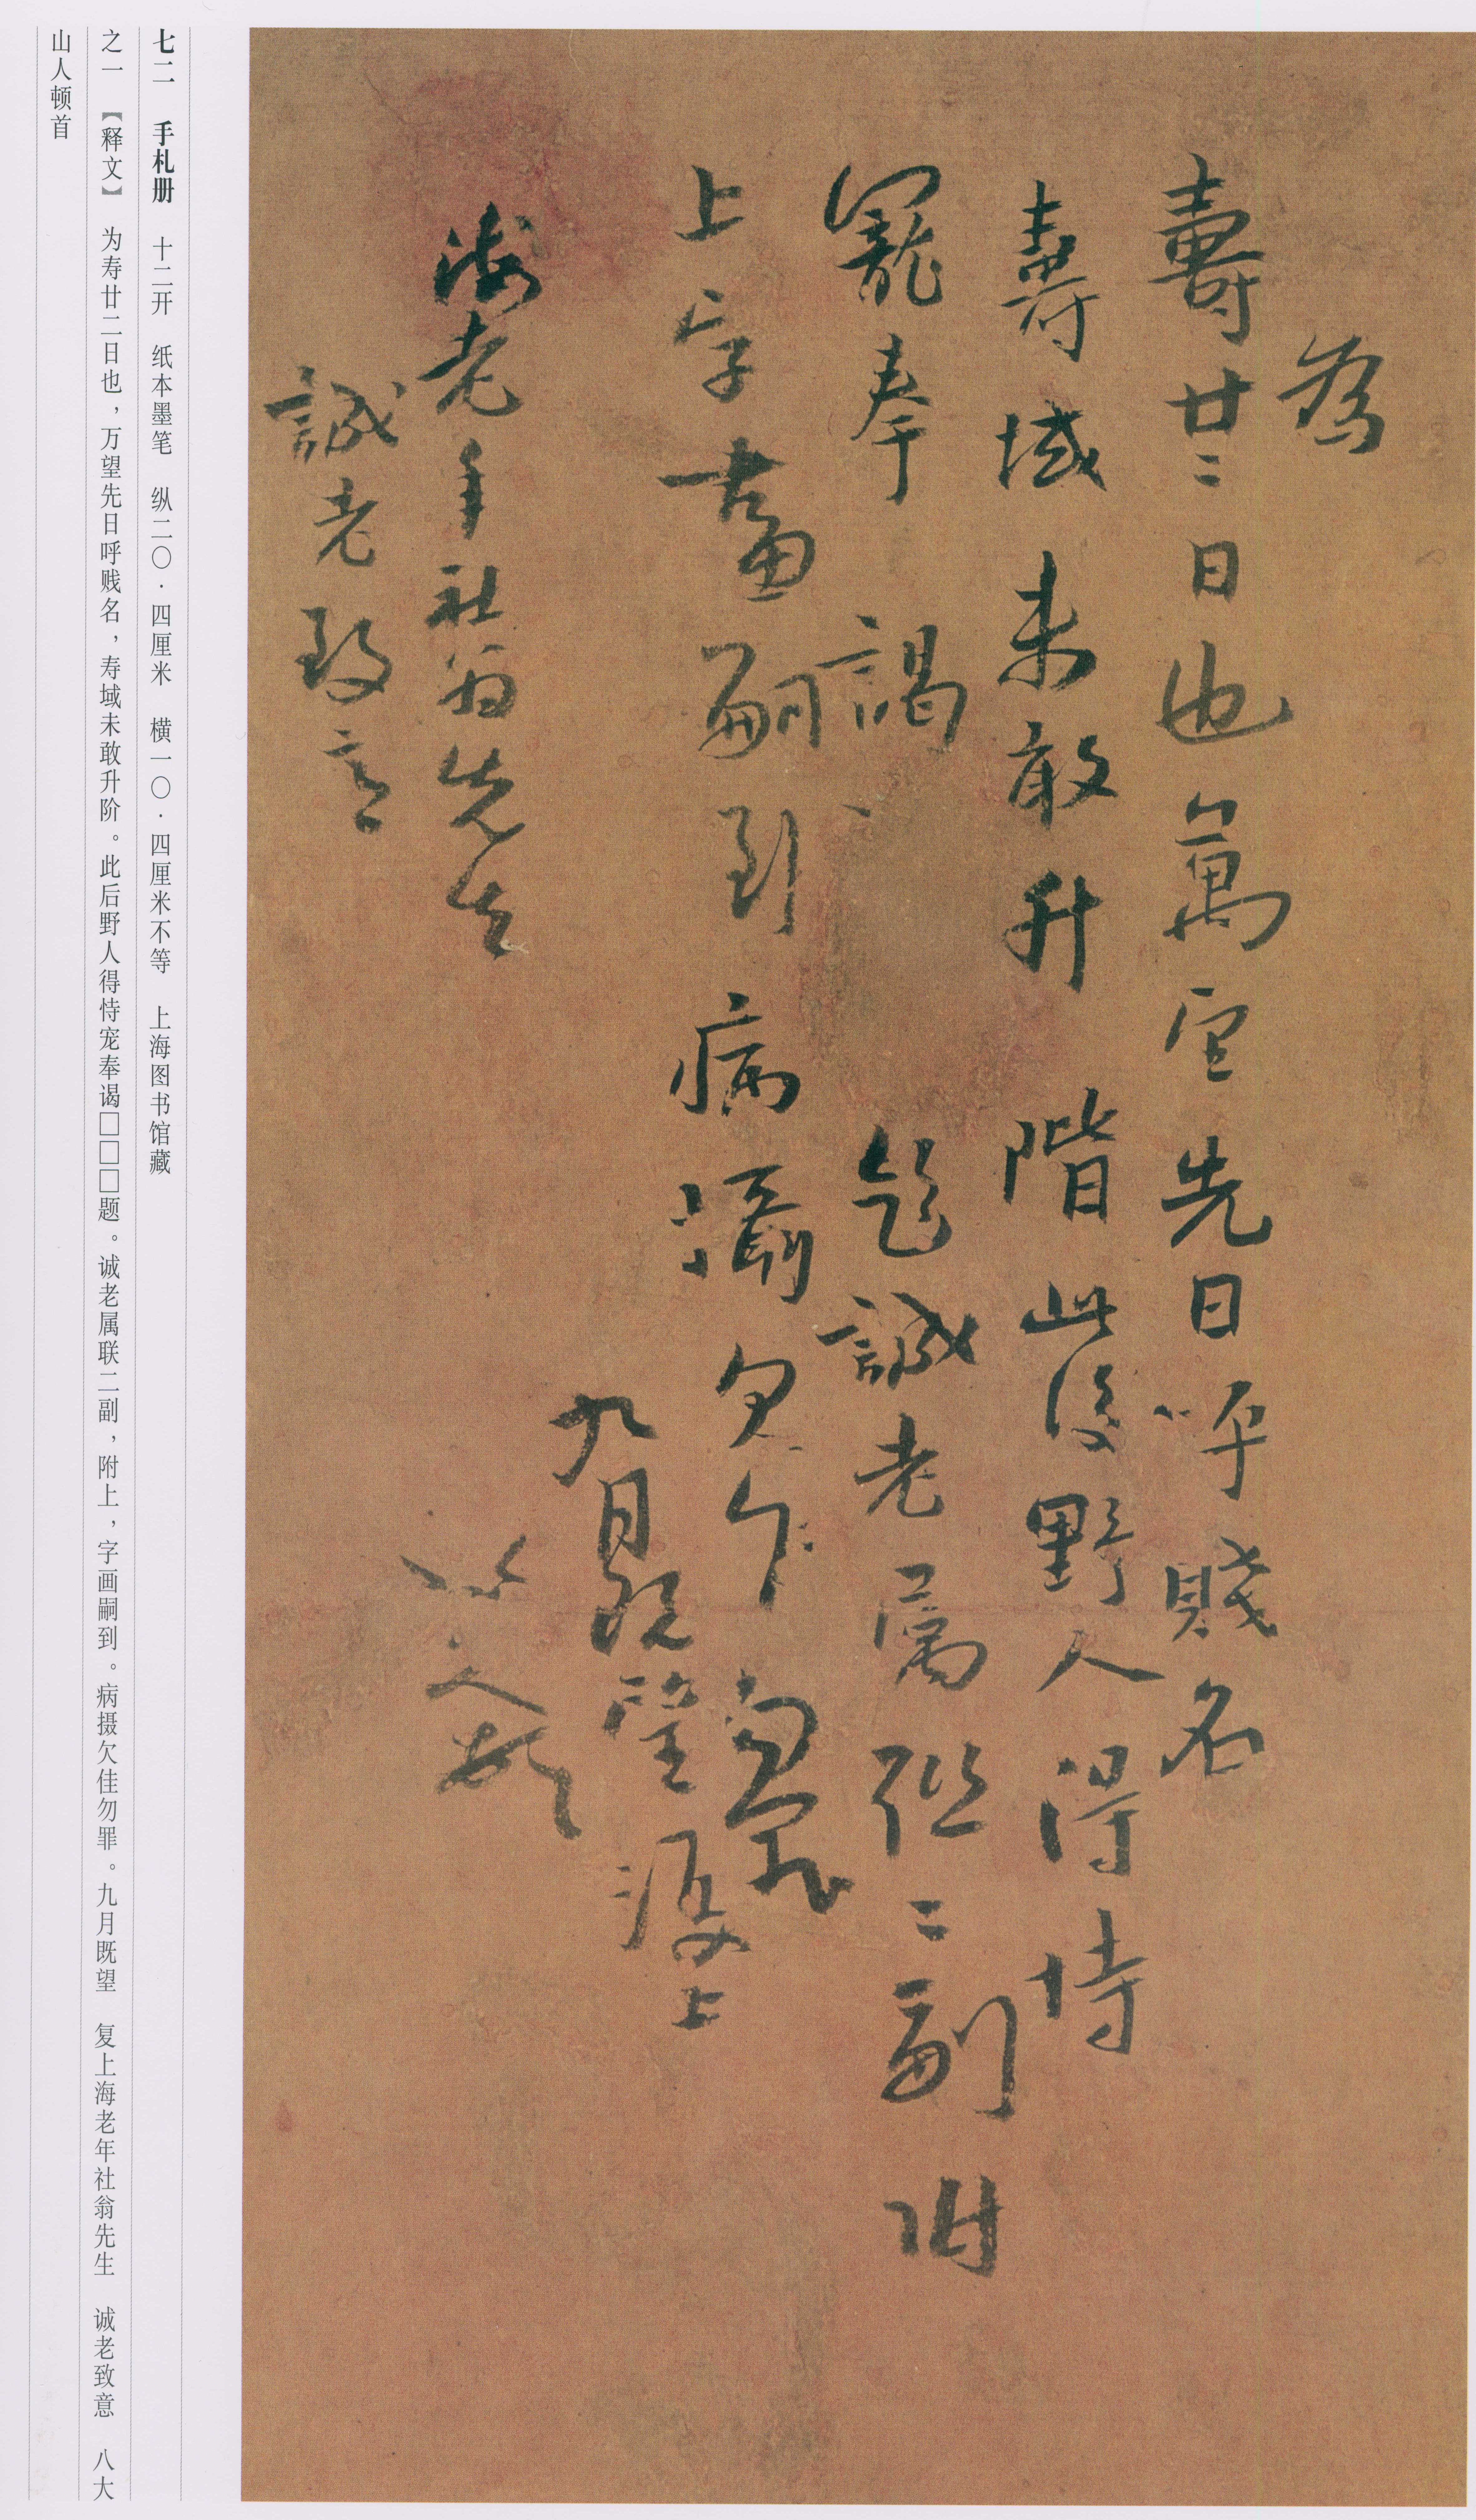 為
壽廿二日也萬望先日呼賤名
壽域未敢升階此後野人得恃
寵奉謁題誠老屬聯二副附
上字畫嗣到病攝欠佳勿罪
九月既望復上
海老年社翁先生
八大山人頓首
誠老致意
七二 手札册 十二开 纸本墨笔 纵二〇·四厘米 横一〇·四厘米不等 上海图书馆藏
之一 【释文】 为寿廿二日也，万望先日呼贱名，寿域未敢升阶。此后野人得恃宠奉谒□□□题。诚老属联二副，附上，字画嗣到。病摄欠佳勿罪。九月既望 复上海老年社翁先生 诚老致意 八大
山人顿首